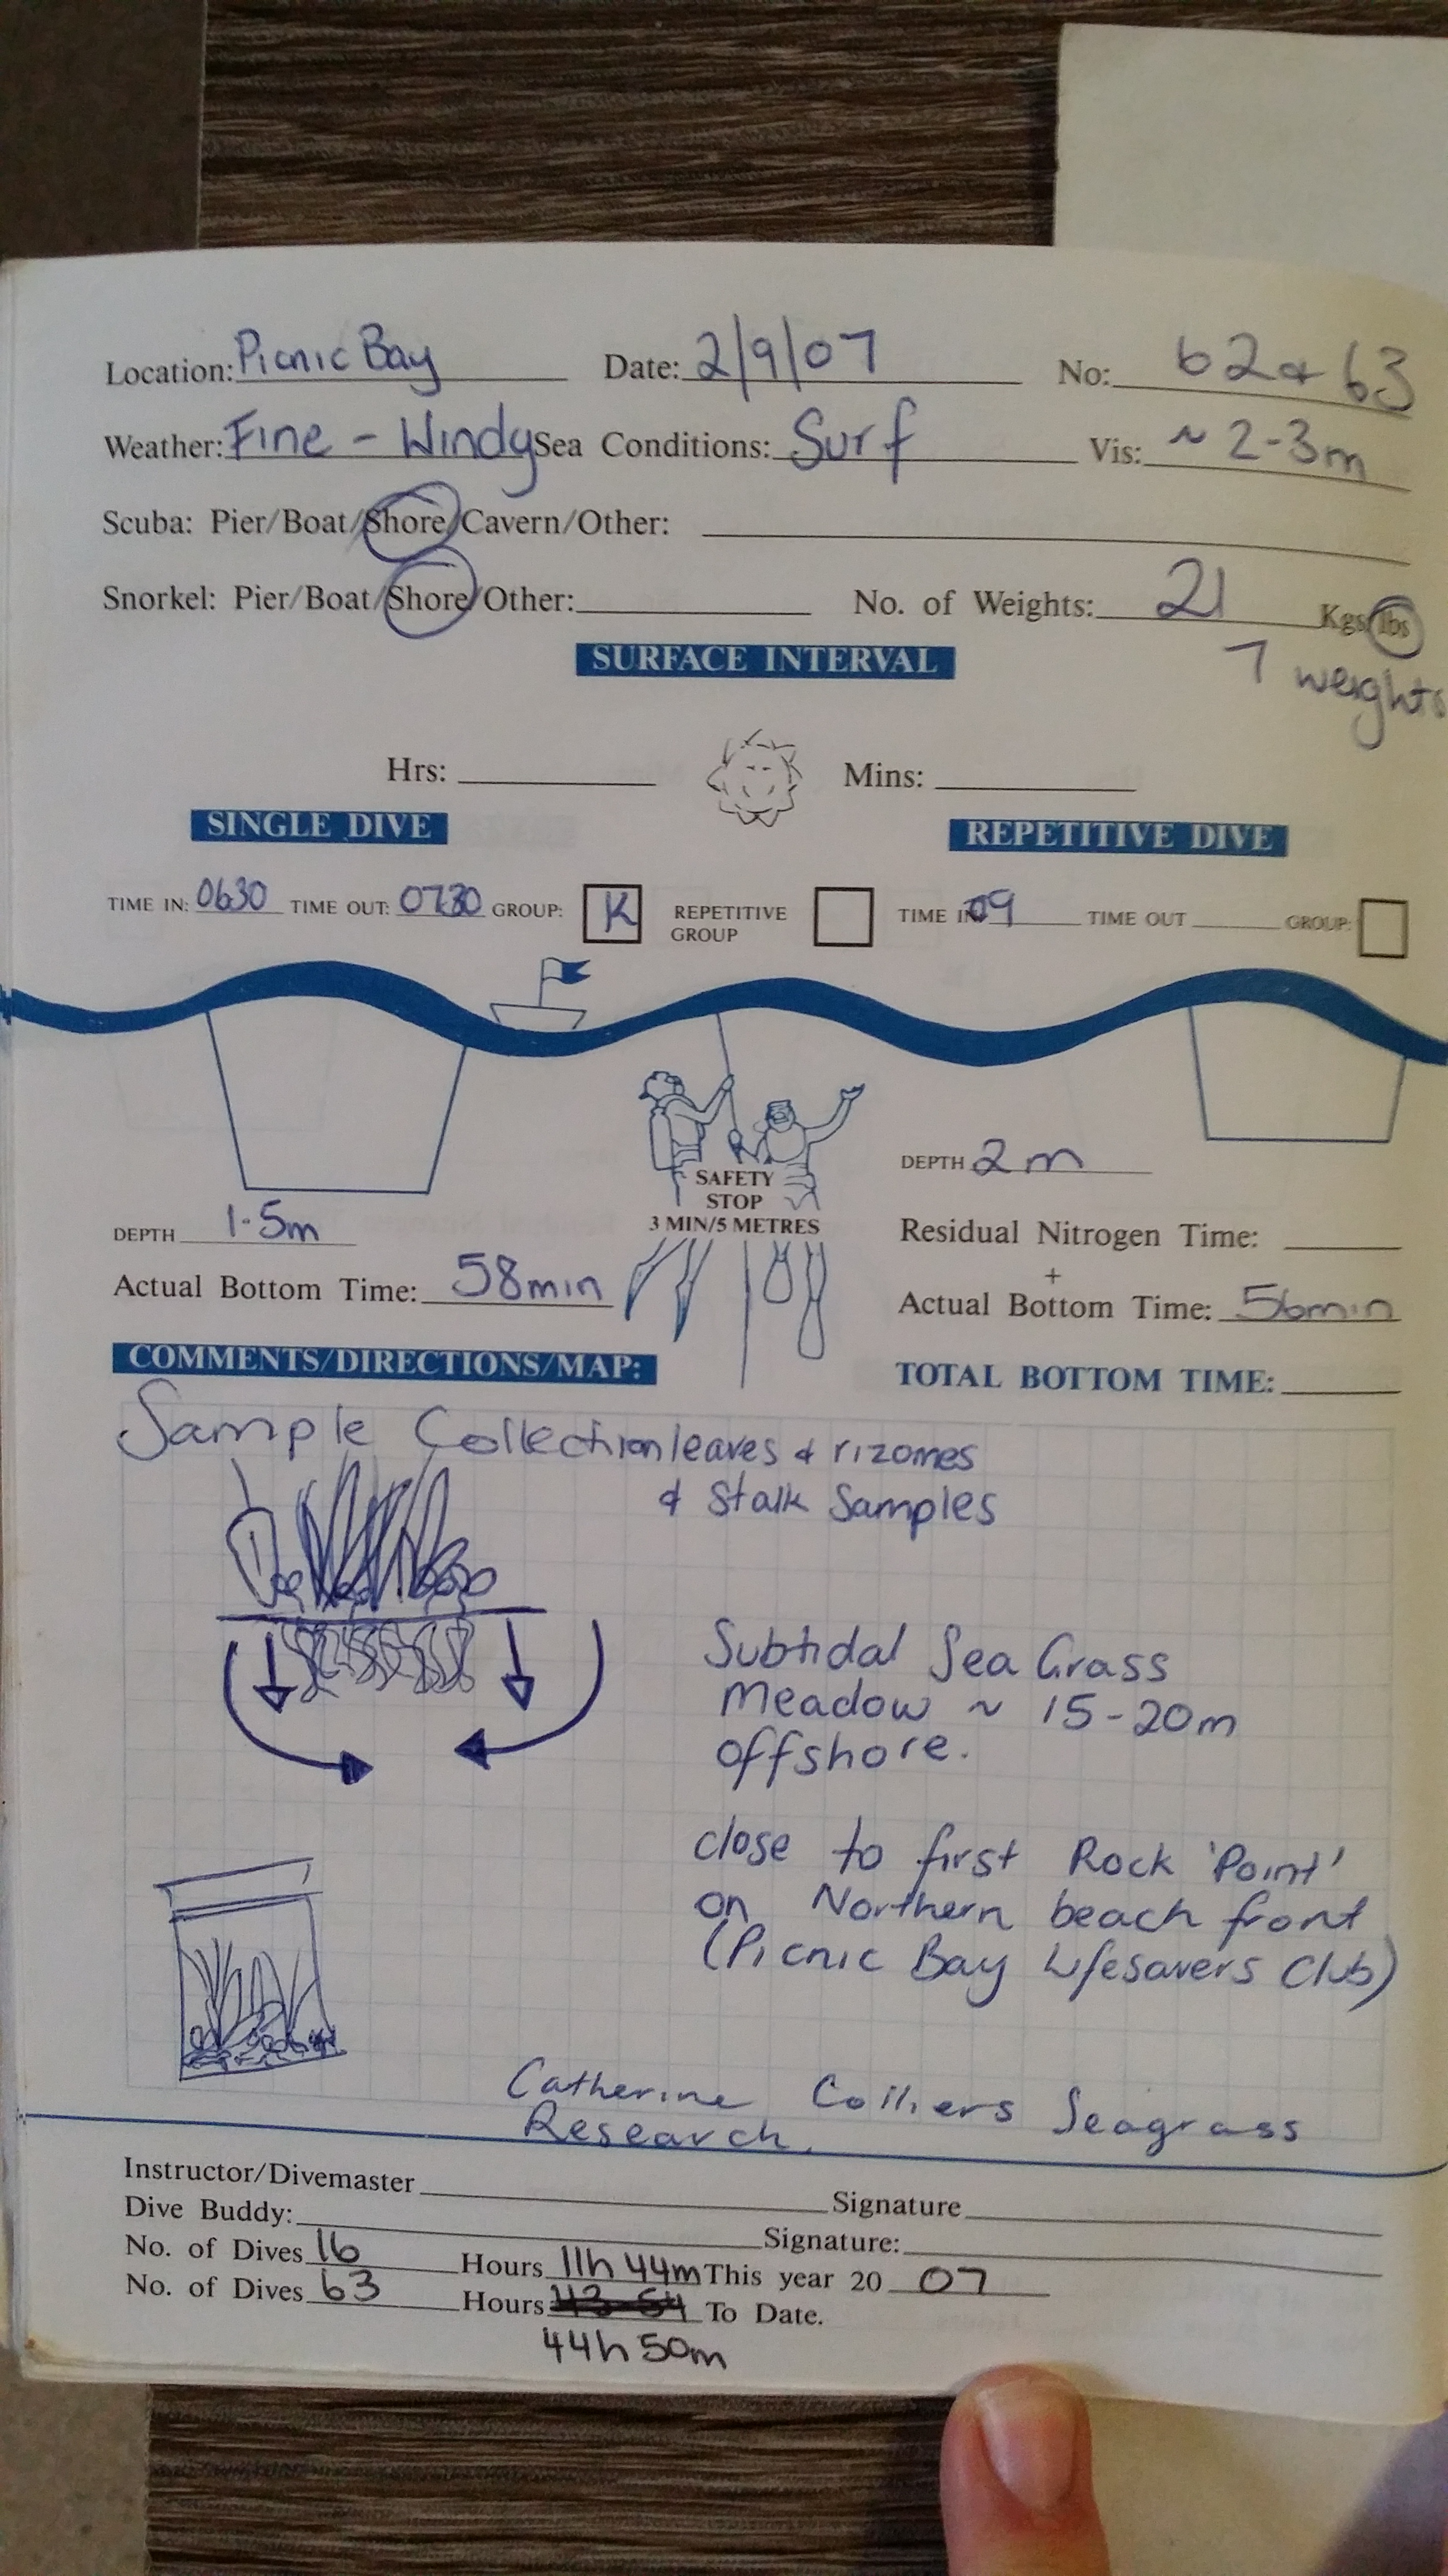 Location: Picnic Bay Date: 2/9/07 No: 62 & 63
Weather: Fine - Windy Sea Conditions: Surf Vis: ~ 2-3m
Scuba: Pier/Boat/Shore/Cavern/Other:
Snorkel: Pier/Boat/Shore/Other: No. of Weights: 21 Kgs/lbs
7 weights
SURFACE INTERVAL
Hrs: Mins:
SINGLE DIVE REPETITIVE DIVE
TIME IN: 0630 TIME OUT: 0730 GROUP: K REPETITIVE GROUP TIME IN 09 TIME OUT GROUP:
SAFETY
STOP
3 MIN/5 METRES
DEPTH 1.5m DEPTH 2m
Actual Bottom Time: 58min Residual Nitrogen Time:
+
Actual Bottom Time: 56min
COMMENTS/DIRECTIONS/MAP: TOTAL BOTTOM TIME:
Sample Collection leaves & rizomes
& Stalk Samples
Subtidal Sea Grass
Meadow ~ 15-20m
offshore.
close to first Rock 'Point'
on Northern beach front
(Picnic Bay Lifesavers Club)
Catherine Colliers Seagrass
Research.
Instructor/Divemaster Signature
Dive Buddy: Signature:
No. of Dives 16 Hours 11h 44m This year 20 07
No. of Dives 63 Hours 43-54 To Date.
44h 50m